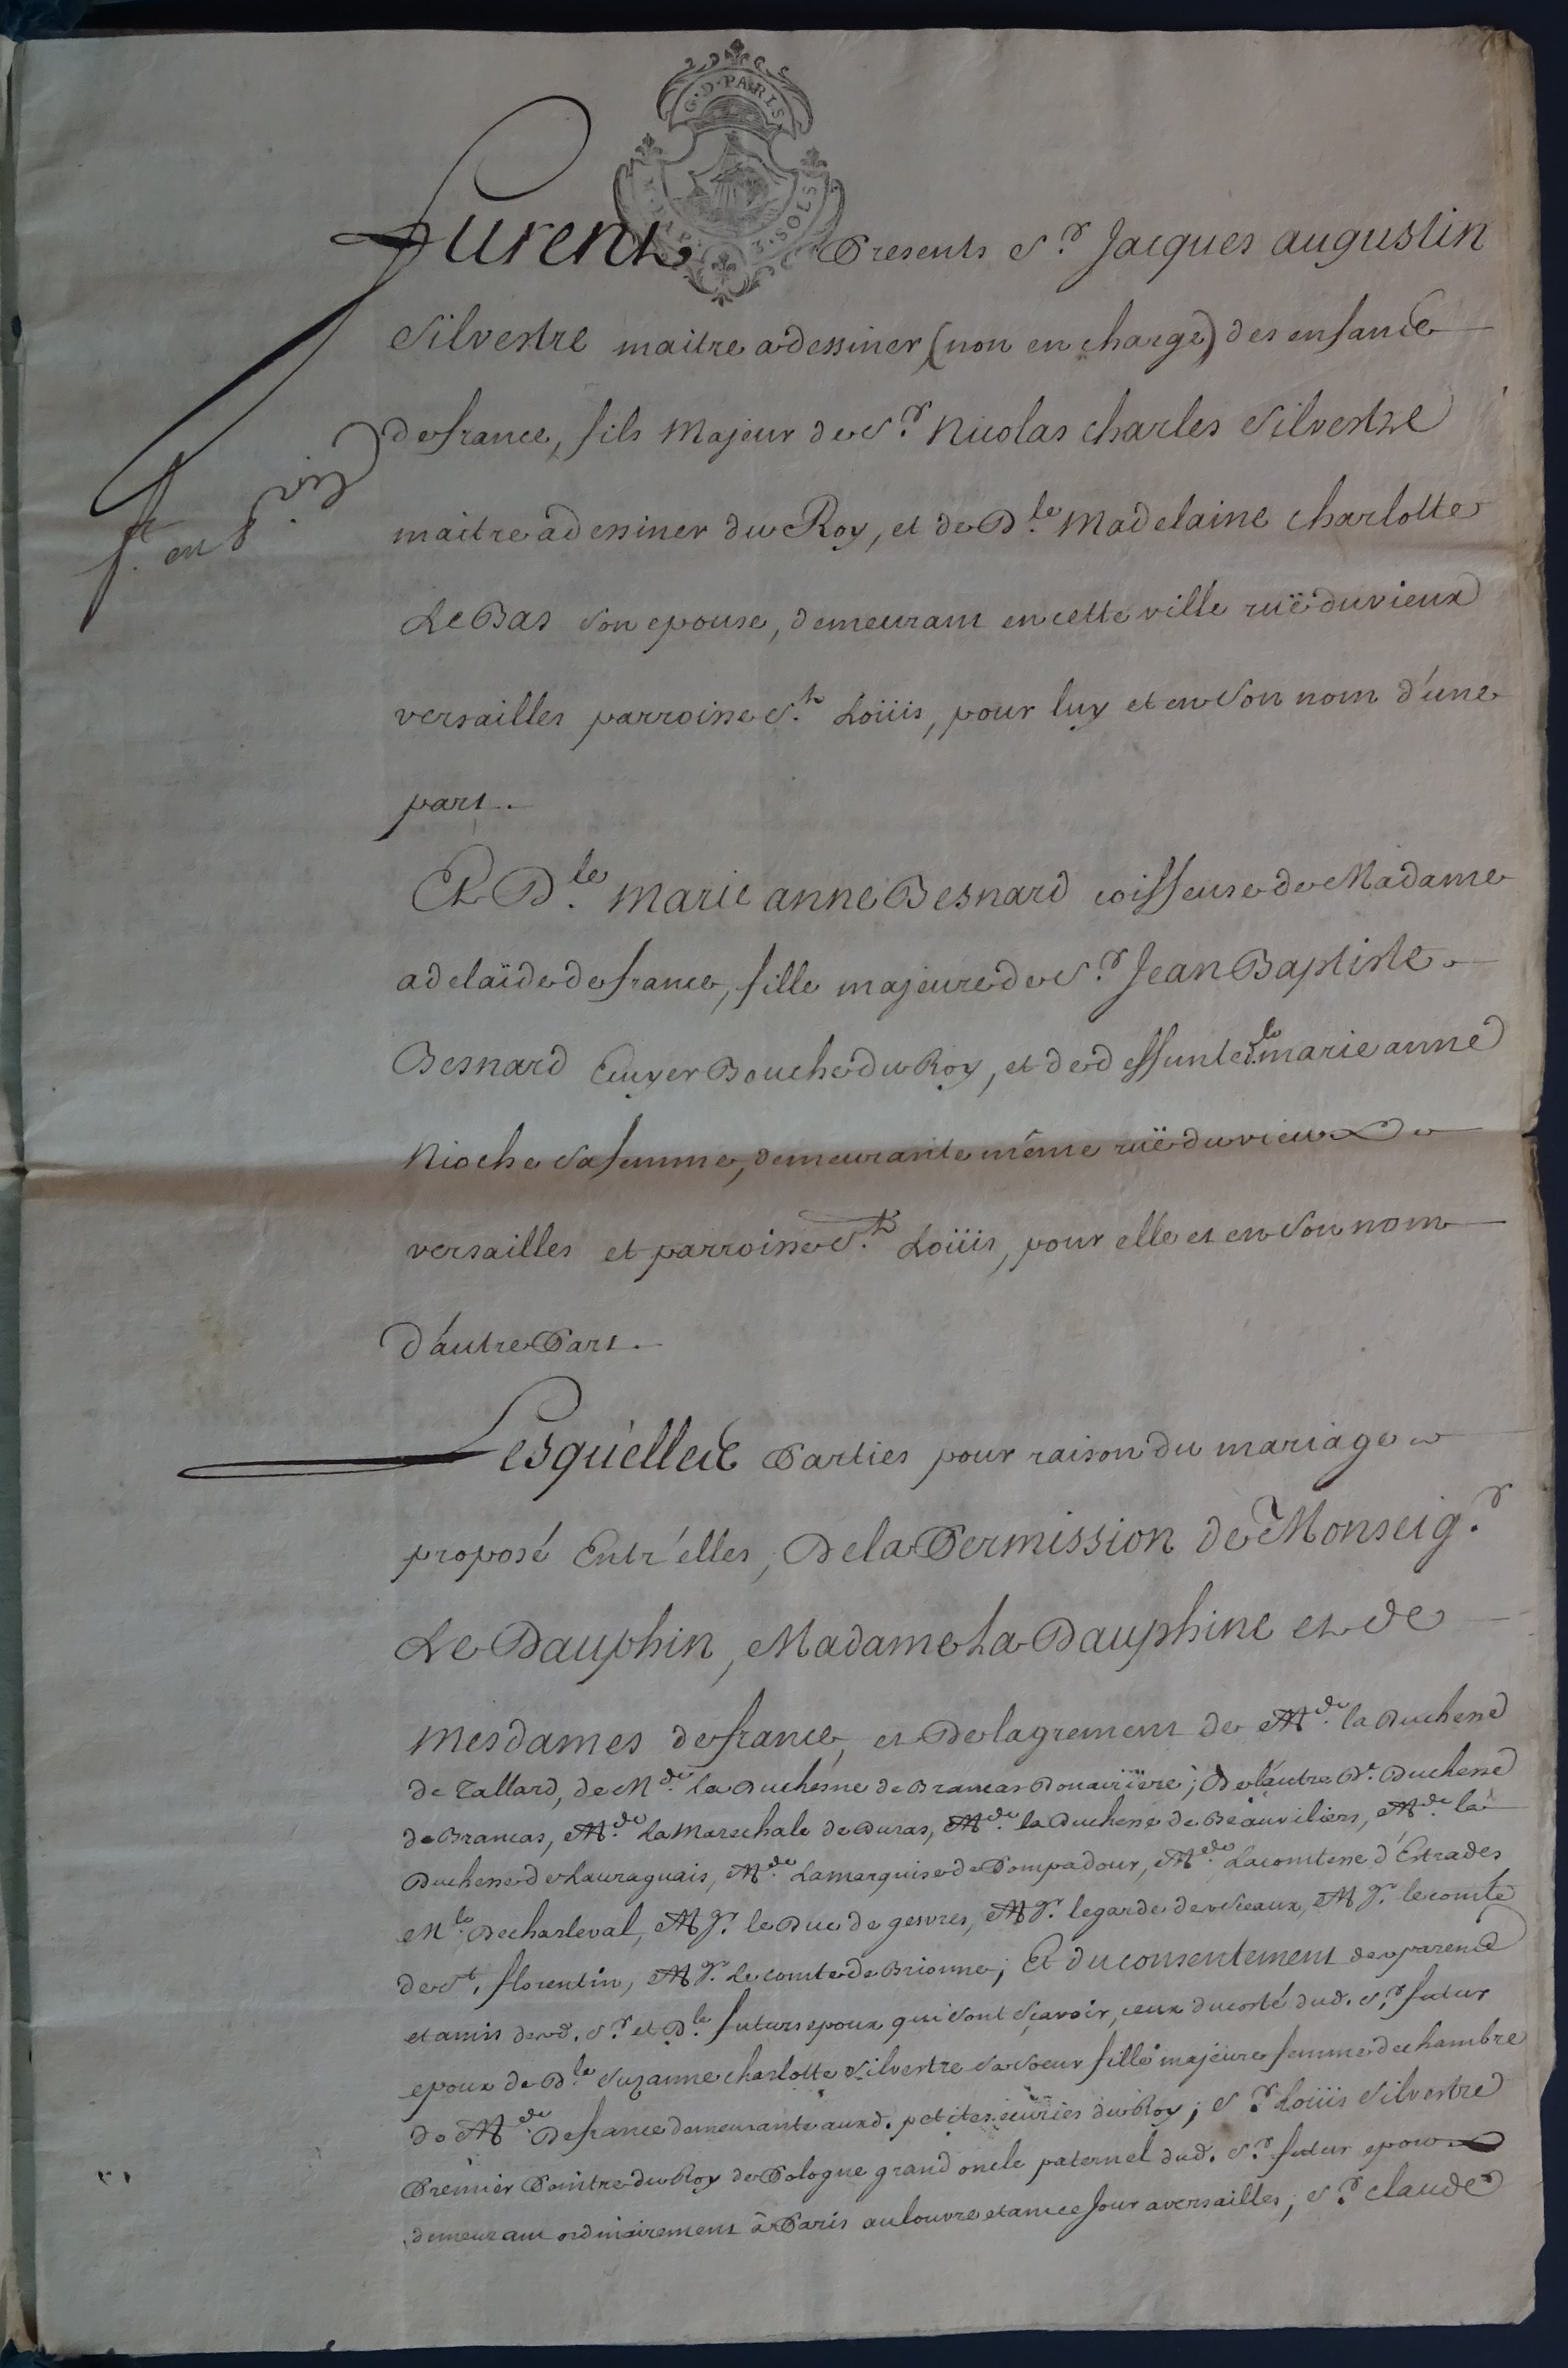 G. D. PARIS
3. SOLS
Furent Presents S.r Jacques augustin
Silvestre maitre a dessiner (non en charge) des enfants
de france, fils Majeur de S.r Nicolas charles Silvestre
maitre a dessiner du Roy, et de D.le Madelaine charlotte
Le Bas son epouse, demeurant en cette ville ruë du vieux
versailles parroisse S.t Loüis, pour luy et en son nom d'une
part.
Et D.le Marie anne Besnard coiffeuse de Madame
adelaïde de france, fille majeure de S.r Jean Baptiste
Besnard Ecuyer Bouche du Roy, et de deffunte d.le marie anne
Nioche sa femme, demeurante même ruë du vieux
versailles et parroisse S.t Loüis, pour elle et en son nom
d'autre Part.
f.t en
Lesquelles Parties pour raison du mariage
proposé Entr'elles, De la Permission de Monseig.r
Le Dauphin, Madame La Dauphine et de
Mesdames de france, et De lagrement de M.de la Duchesse
de Tallard, de M.de La Duchesse de Brancas Douairiere; De l'autre D.e Duchesse
de Brancas, M.de La Marechale de Duras, M.de la Duchesse de Beauviliers, M.de la
Duchesse de Lauraguais, M.de La marquise de Pompadour, M.de La comtesse d'Estrades
M.le De charleval, M.gr. le Duc de gesvres, M.gr. le garde des sceaux, M.gr. le comte
de S.t florentin, M.gr. Le comte de Brionne; Et du consentement des parens
et amis desd. S.r et D.le futurs epoux qui sont sçavoir, ceux du costé dud. S.r futur
epoux de D.le Suzanne charlotte Silvestre sa soeur fille majeure femme de chambre
de M.de De france demeurante auxd. petites ecuries du Roy; S.r Loüis Silvestre
Premier Peintre du Roy de Pologne grand oncle paternel dud. S.r futur epoux
demeurant ordinairement à Paris au louvre etant ce jour a versailles; S.r claude